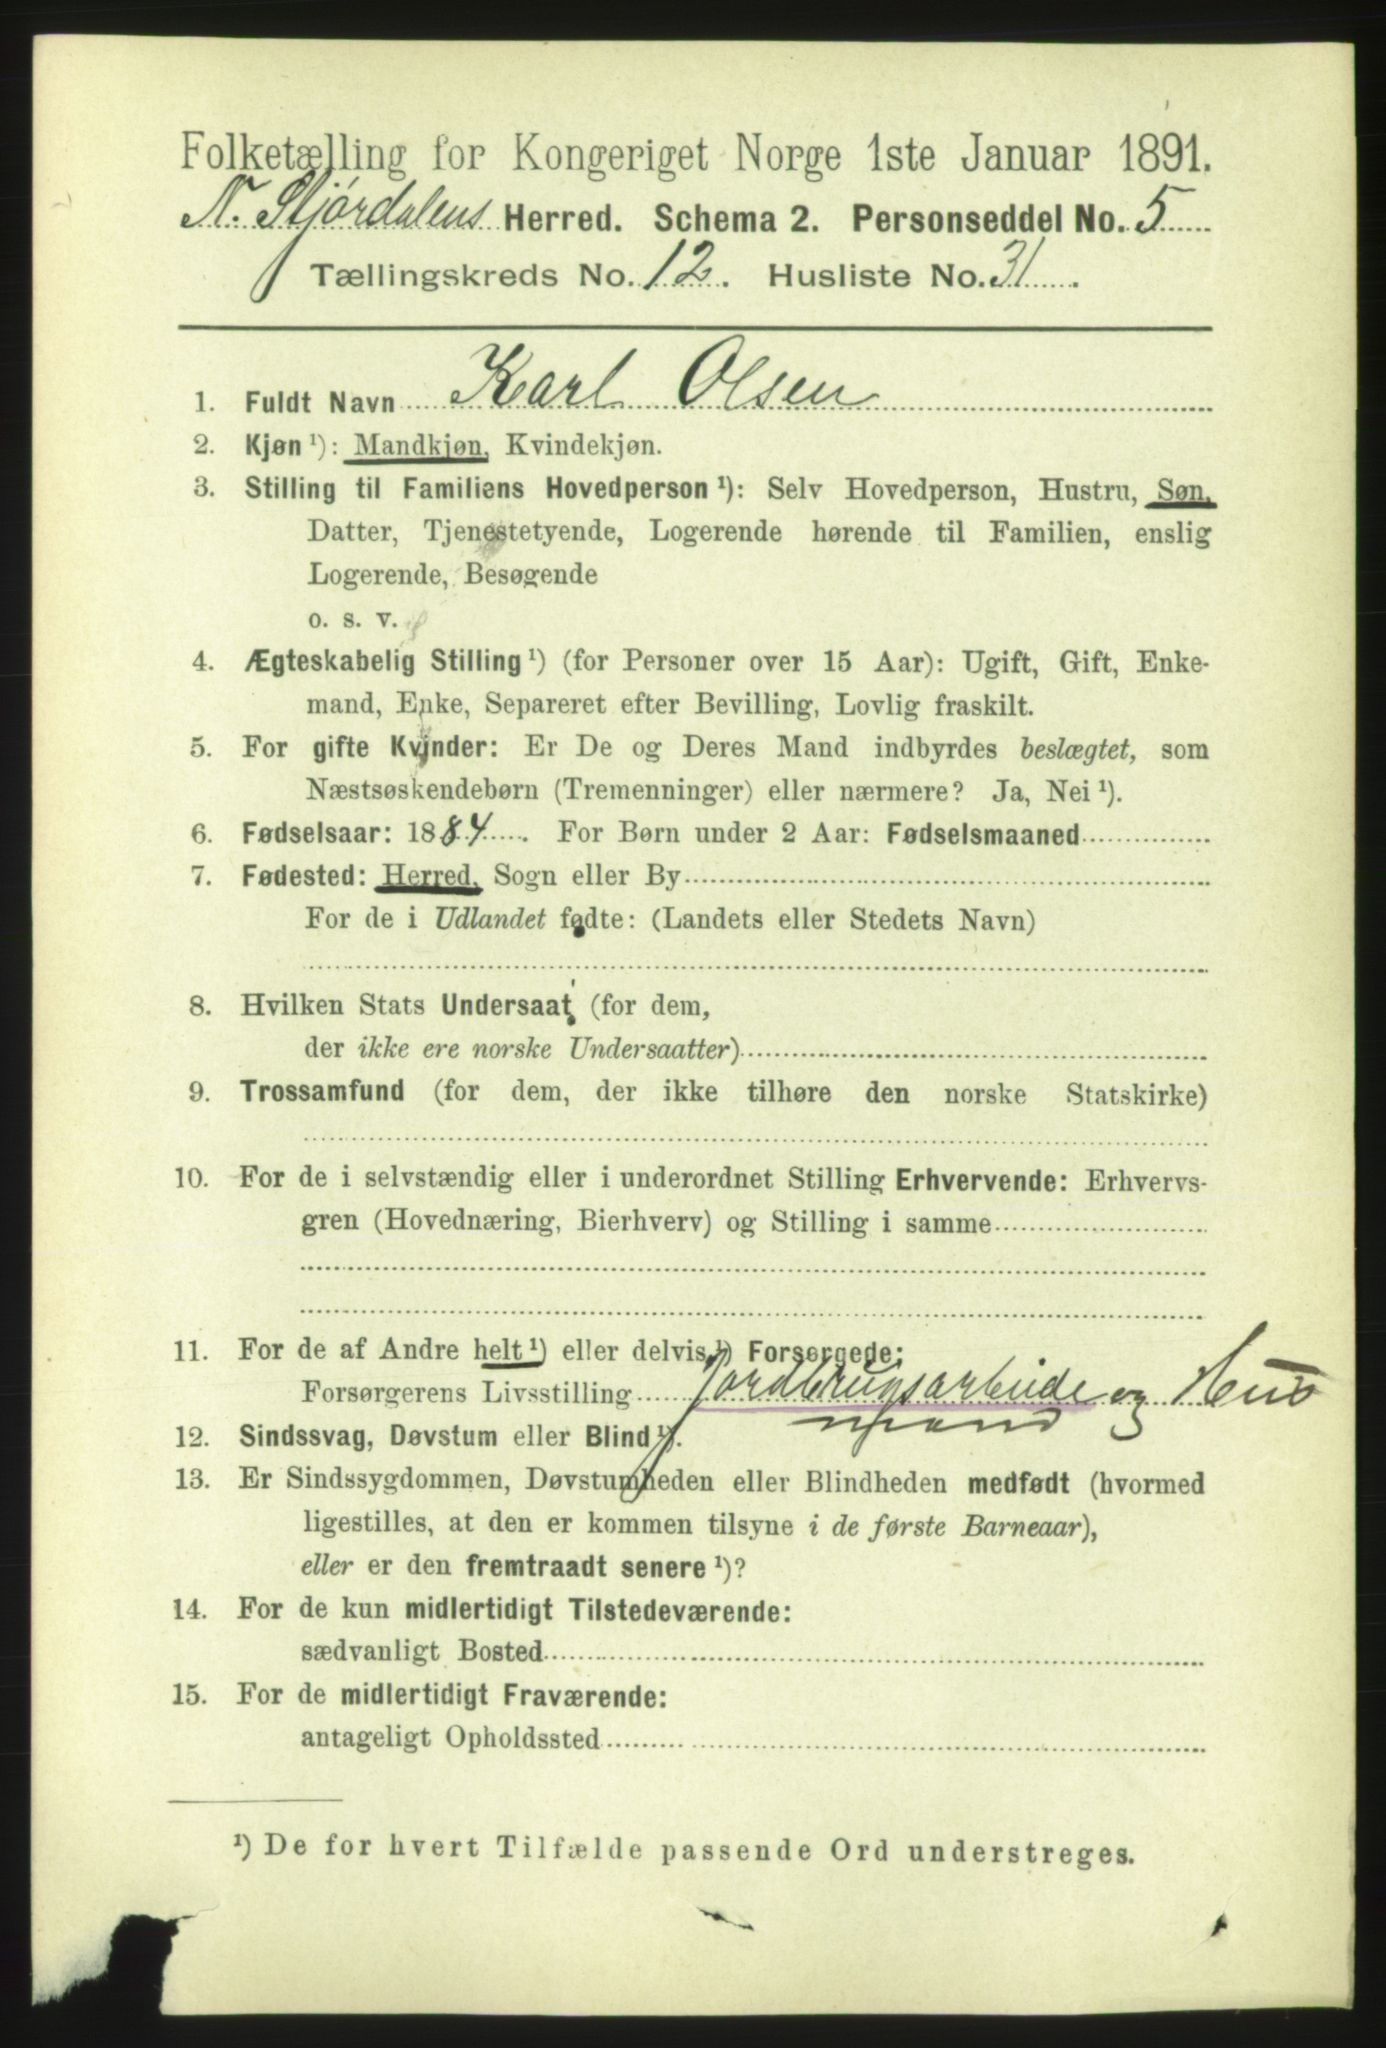 Folketælling for Kongeriget Norge 1ste Januar 1891.
N. Stjørdalens Herred. Schema 2. Personseddel No. 5
Tællingskreds No. 12. Husliste No. 31.
1. Fuldt Navn Karl Olsen
2. Kjøn ¹): Mandkjøn, Kvindekjøn.
3. Stilling til Familiens Hovedperson ¹): Selv Hovedperson, Hustru, Søn,
Datter, Tjenestetyende, Logerende hørende til Familien, enslig
Logerende, Besøgende
o. s. v.
4. Ægteskabelig Stilling ¹) (for Personer over 15 Aar): Ugift, Gift, Enke-
mand, Enke, Separeret efter Bevilling, Lovlig fraskilt.
5. For gifte Kvinder: Er De og Deres Mand indbyrdes beslægtet, som
Næstsøskendebørn (Tremenninger) eller nærmere? Ja, Nei ¹).
6. Fødselsaar: 1884. For Børn under 2 Aar: Fødselsmaaned
7. Fødested: Herred, Sogn eller By
For de i Udlandet fødte: (Landets eller Stedets Navn)
8. Hvilken Stats Undersaat (for dem,
der ikke ere norske Undersaatter)
9. Trossamfund (for dem, der ikke tilhøre den norske Statskirke)
10. For de i selvstændig eller i underordnet Stilling Erhvervende: Erhvervs-
gren (Hovednæring, Bierhverv) og Stilling i samme
11. For de af Andre helt ¹) eller delvis ¹) Forsørgede:
Forsørgerens Livsstilling Jordbrugsarbeide og Hus
mand
12. Sindssvag, Døvstum eller Blind ¹).
13. Er Sindssygdommen, Døvstumheden eller Blindheden medfødt (hvormed
ligestilles, at den er kommen tilsyne i de første Barneaar),
eller er den fremtraadt senere ¹)?
14. For de kun midlertidigt Tilstedeværende:
sædvanligt Bosted
15. For de midlertidigt Fraværende:
antageligt Opholdssted
¹) De for hvert Tilfælde passende Ord understreges.